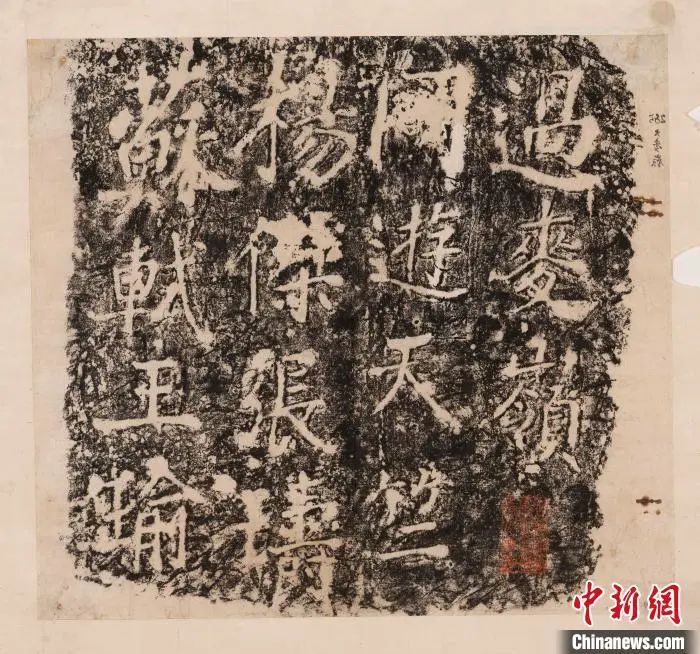 蘇軾王瑜
楊傑張璹
同遊天竺
過麥嶺
中新網
Chinanews.com